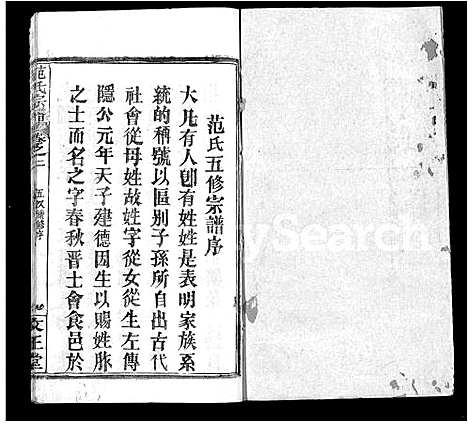 范氏五修宗譜序
大凡有人卽有姓姓是表明家族系
統的稱號以區別子孫所自出古代
社會從母姓故姓字從女從生左傳
隱公元年天子建德因生以賜姓胙
之士而名之字春秋晋士會食邑於
范氏宗譜 卷之二 五修譜序
文正堂